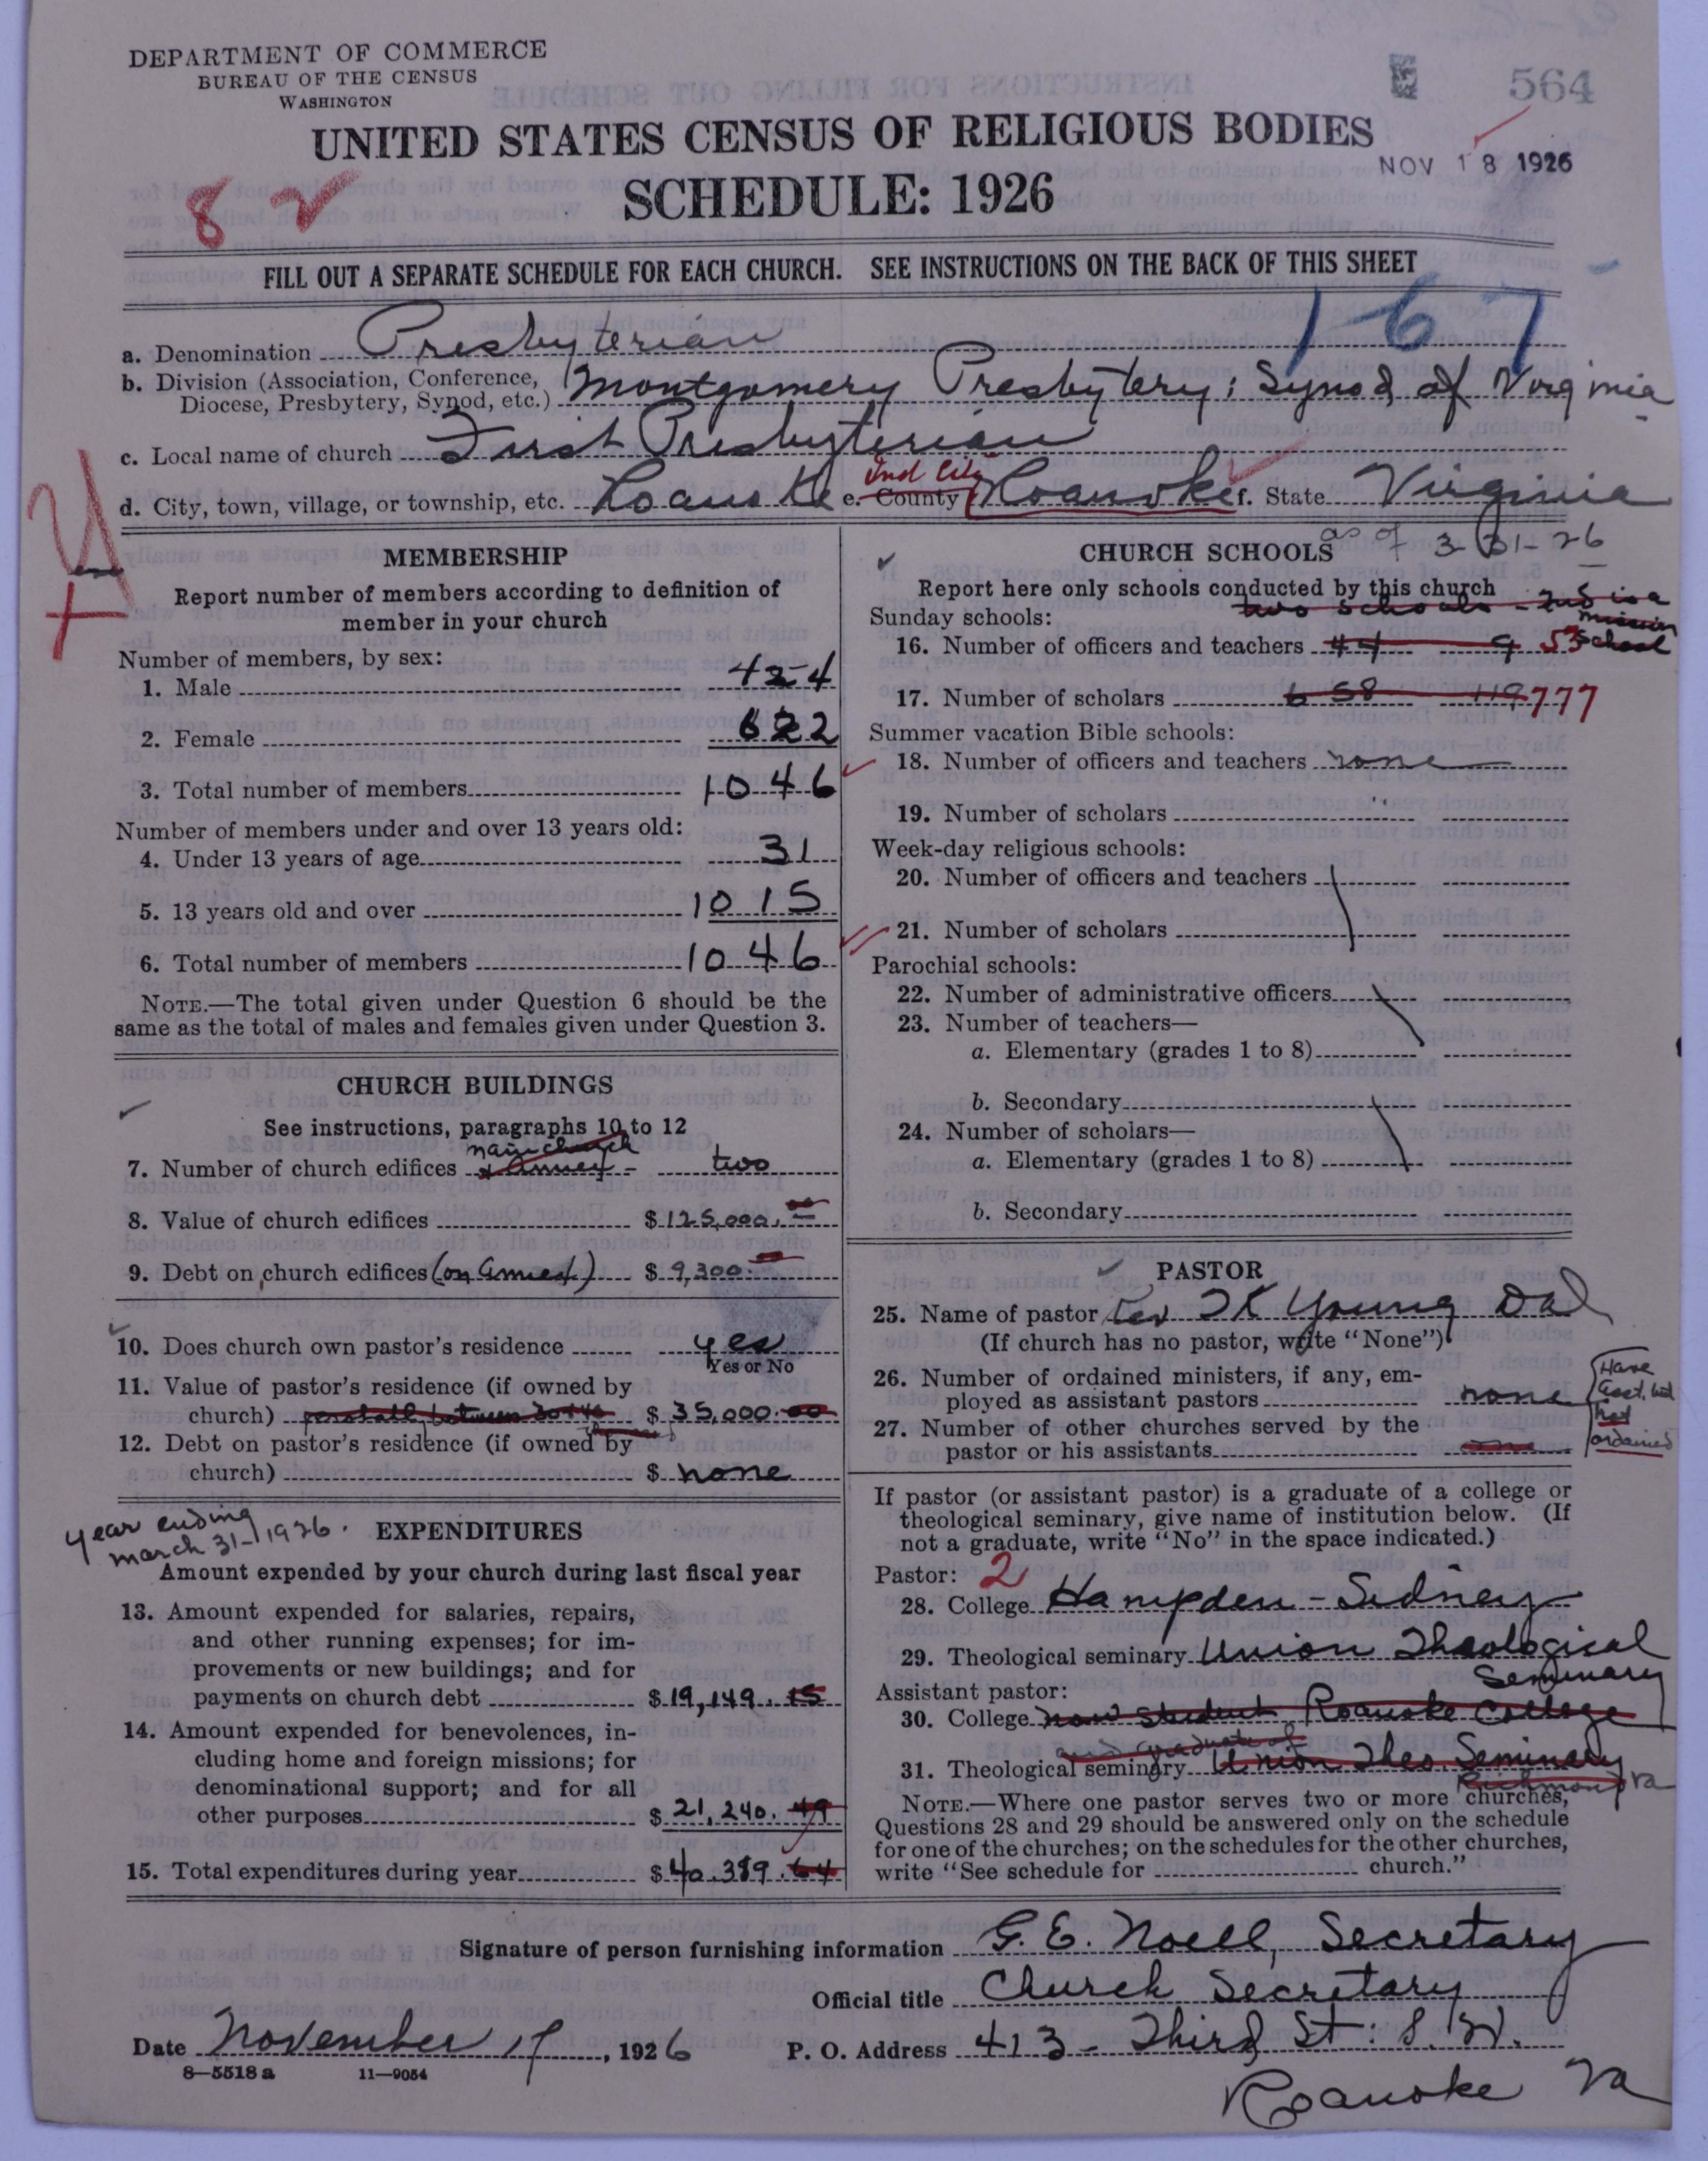 DEPARTMENT OF COMMERCE
BUREAU OF THE CENSUS
WASHINGTON
564
UNITED STATES CENSUS OF RELIGIOUS BODIES
NOV 18 1926
SCHEDULE: 1926
8 2
FILL OUT A SEPARATE SCHEDULE FOR EACH CHURCH. SEE INSTRUCTIONS ON THE BACK OF THIS SHEET
1-67
a. Denomination Presbyterian
b. Division (Association, Conference, Diocese, Presbytery, Synod, etc.) Montgomery Presbytery; Synod of Virginia
c. Local name of church First Presbyterian
Ind City
d. City, town, village, or township, etc. Roanoke e. County Roanoke f. State Virginia
MEMBERSHIP
Report number of members according to definition of
member in your church
Number of members, by sex:
1. Male 424
2. Female 622
3. Total number of members 1046
Number of members under and over 13 years old:
4. Under 13 years of age 31
5. 13 years old and over 1015
6. Total number of members 1046
NOTE.—The total given under Question 6 should be the
same as the total of males and females given under Question 3.
CHURCH BUILDINGS
See instructions, paragraphs 10 to 12
main church
7. Number of church edifices & Annex - two
8. Value of church edifices $125,000.
9. Debt on church edifices (on Annex) $9,300.
10. Does church own pastor's residence yes
Yes or No
11. Value of pastor's residence (if owned by
church) between 30 & 40 $35,000.00
12. Debt on pastor's residence (if owned by
church) $ none
year ending
march 31-1926.
EXPENDITURES
Amount expended by your church during last fiscal year
13. Amount expended for salaries, repairs,
and other running expenses; for im-
provements or new buildings; and for
payments on church debt $19,149.15
14. Amount expended for benevolences, in-
cluding home and foreign missions; for
denominational support; and for all
other purposes $21,240.49
15. Total expenditures during year $40,389.64
CHURCH SCHOOLS as of 3-31-26
Report here only schools conducted by this church
two schools - 2nd is a
mission
school
Sunday schools:
16. Number of officers and teachers 44 9 53
17. Number of scholars 658 119 777
Summer vacation Bible schools:
18. Number of officers and teachers none
19. Number of scholars
Week-day religious schools:
20. Number of officers and teachers
21. Number of scholars
Parochial schools:
22. Number of administrative officers
23. Number of teachers—
a. Elementary (grades 1 to 8)
b. Secondary
24. Number of scholars—
a. Elementary (grades 1 to 8)
b. Secondary
PASTOR
25. Name of pastor Rev T K Young
(If church has no pastor, write "None")
26. Number of ordained ministers, if any, em-
ployed as assistant pastors none
Have
Asst, but
not
ordained
27. Number of other churches served by the
pastor or his assistants
If pastor (or assistant pastor) is a graduate of a college or
theological seminary, give name of institution below. (If
not a graduate, write "No" in the space indicated.)
Pastor: 2
28. College Hampden-Sidney
29. Theological seminary Union Theological
Seminary
Assistant pastor:
30. College now student Roanoke College
and graduate of
31. Theological seminary Union Theo. Seminary
Richmond Va
NOTE.—Where one pastor serves two or more churches,
Questions 28 and 29 should be answered only on the schedule
for one of the churches; on the schedules for the other churches,
write "See schedule for church."
Signature of person furnishing information G. E. Noell, Secretary
Official title Church Secretary
Date November 17, 1926 P. O. Address 413- Third St: S.W.
8—5518 a 11—9054
Roanoke Va